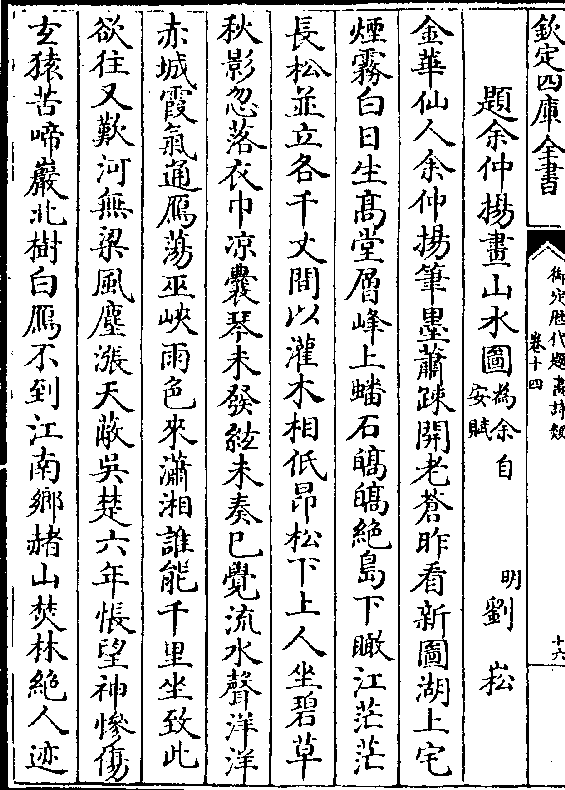 欽定四庫全書
御定歴代題畫詩類
卷十四
十六
題余仲揚畫山水圖為余自安賦
明劉崧
金華仙人余仲揚筆墨蕭踈開老蒼昨看新圖湖上宅
煙霧白日生髙堂層峰上蟠石皜皜絶島下瞰江茫茫
長松並立各千丈間以灌木相低昂松下上人坐碧草
秋影忽落衣巾凉囊琴未發絃未奏已覺流水聲洋洋
赤城霞氣通鴈蕩巫峽雨色來瀟湘誰能千里坐致此
欲往又歎河無梁風塵漲天蔽吳楚六年悵望神慘傷
玄猿苦啼巖北樹白鴈不到江南鄉赭山焚林絶人迹